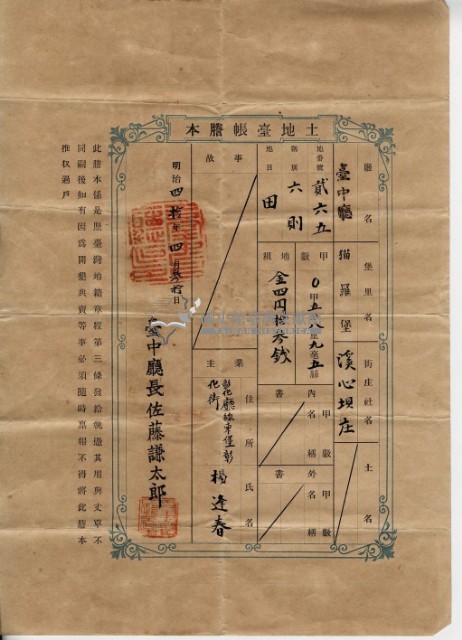 土地臺帳謄本
廳名
臺中廳
堡里名
猫羅堡
街庄社名
溪心埧庄
土名
地番號
貳六五
等則
六則
地目
田
甲數
0甲五八九五
地租
金四円拾參錢
內書
甲數
名稱
外書
甲數
名稱
事故
業主
住所
彰化廳線東堡彰化街
氏名
楊逢春
明治四拾年四月
臺中廳長佐藤謙太郎
此謄本係是照臺灣地籍章程第三條發給就還其用與丈單不
同嗣後如有因爲開墾典賣等事必須隨時稟報不得將此謄本
推收過戶